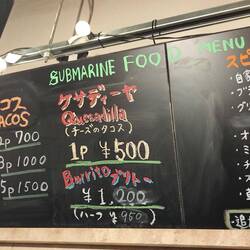 SUBMARINE FOOD MENU
コス
ACOS
2p 700
3p 1000
5p 1500
ケサディーヤ
Quesadilla
(チーズのタコス)
1p ¥500
Burrito ブリトー
¥1,200
(ハーフ ¥950)
スピ
追